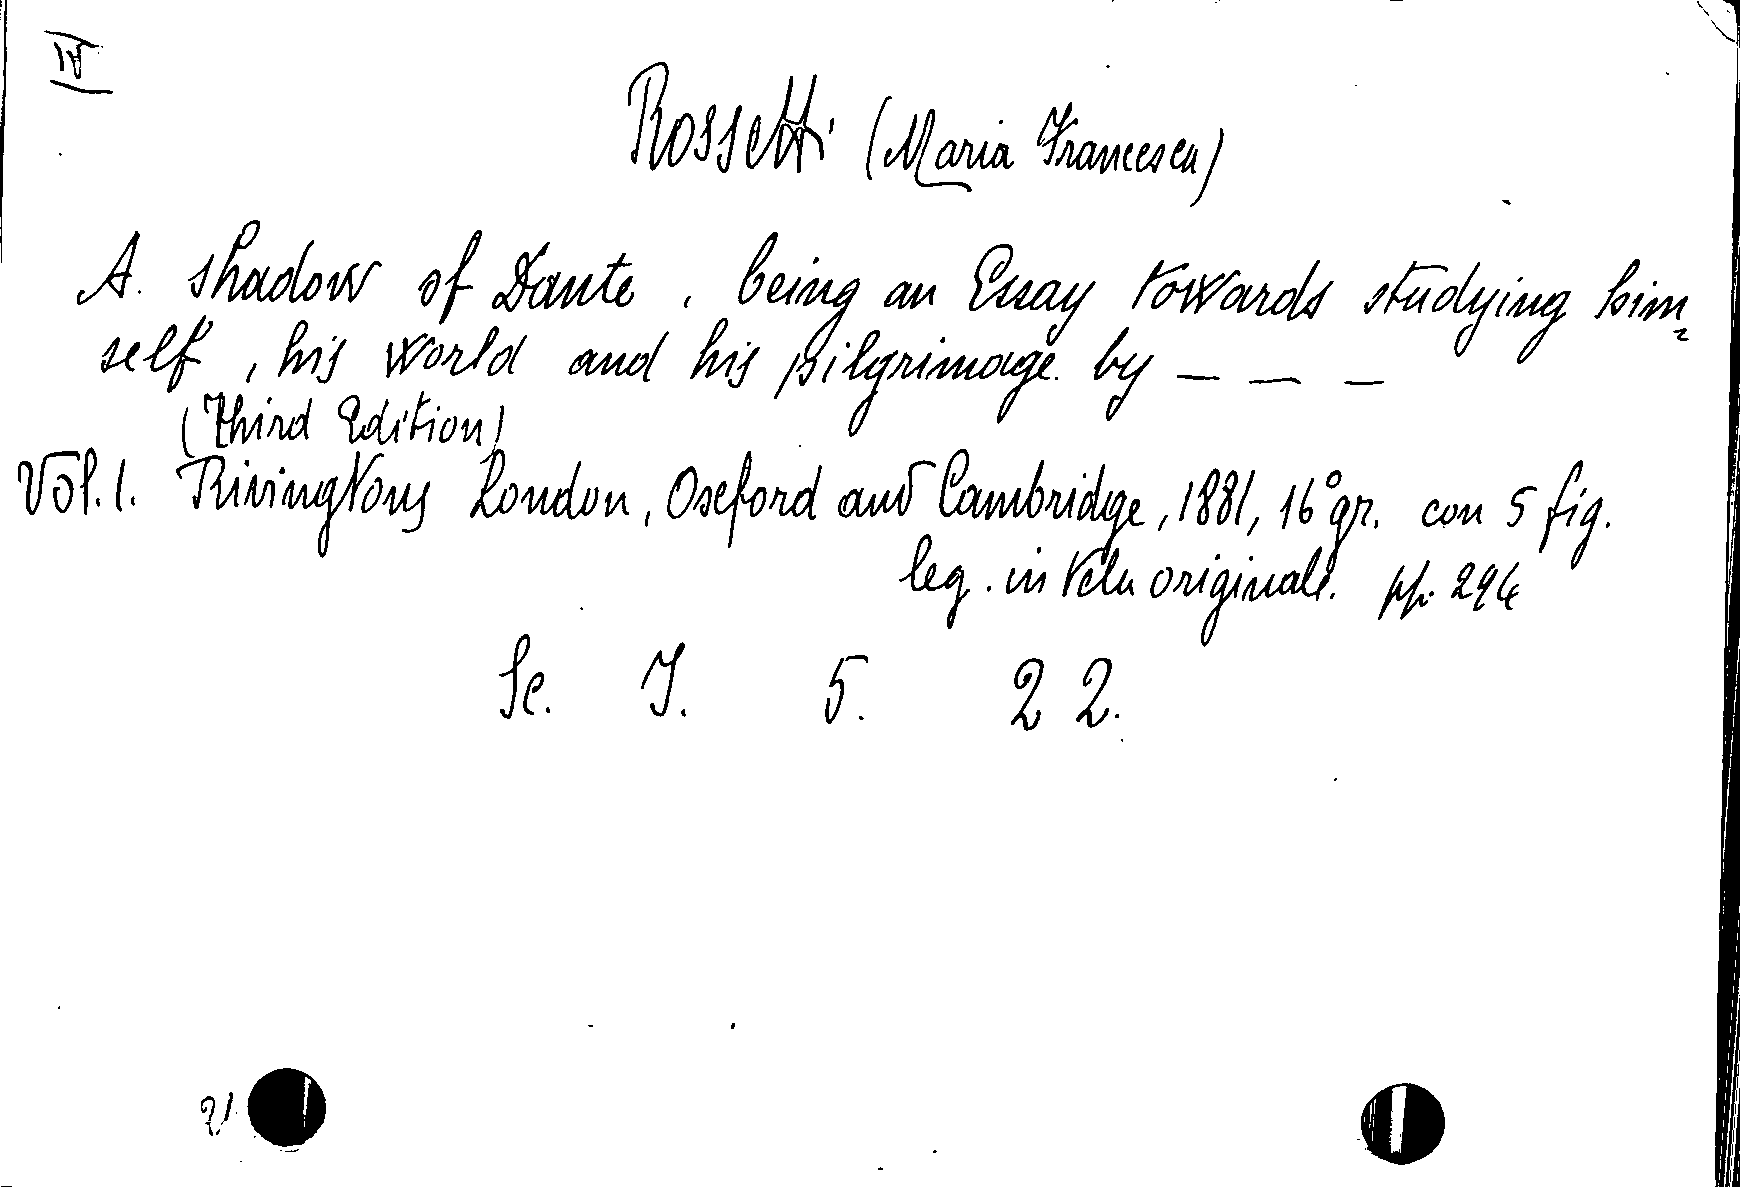 IV
Rossetti (Maria Francesca)
A. shadow of Dante, being an Essay towards studying him-
self, his world and his pilgrimage. by _ _ _
(Third Edition)
Vol. 1. Rivingtons London, Oxford and Cambridge, 1881, 16° gr. con 5 fig.
leg. in tela originale. pp. 296
Sc. I. 5. 22.